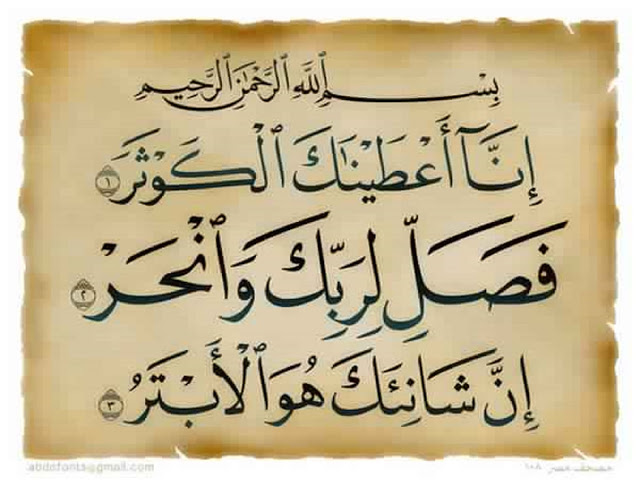 بِسْمِ ٱللَّهِ ٱلرَّحْمَٰنِ ٱلرَّحِيمِ
إِنَّآ أَعْطَيْنَٰكَ ٱلْكَوْثَرَ ١
فَصَلِّ لِرَبِّكَ وَٱنْحَرْ ٢
إِنَّ شَانِئَكَ هُوَ ٱلْأَبْتَرُ ٣
abdofonts@gmail.com
مصحف مصر ١٠٨